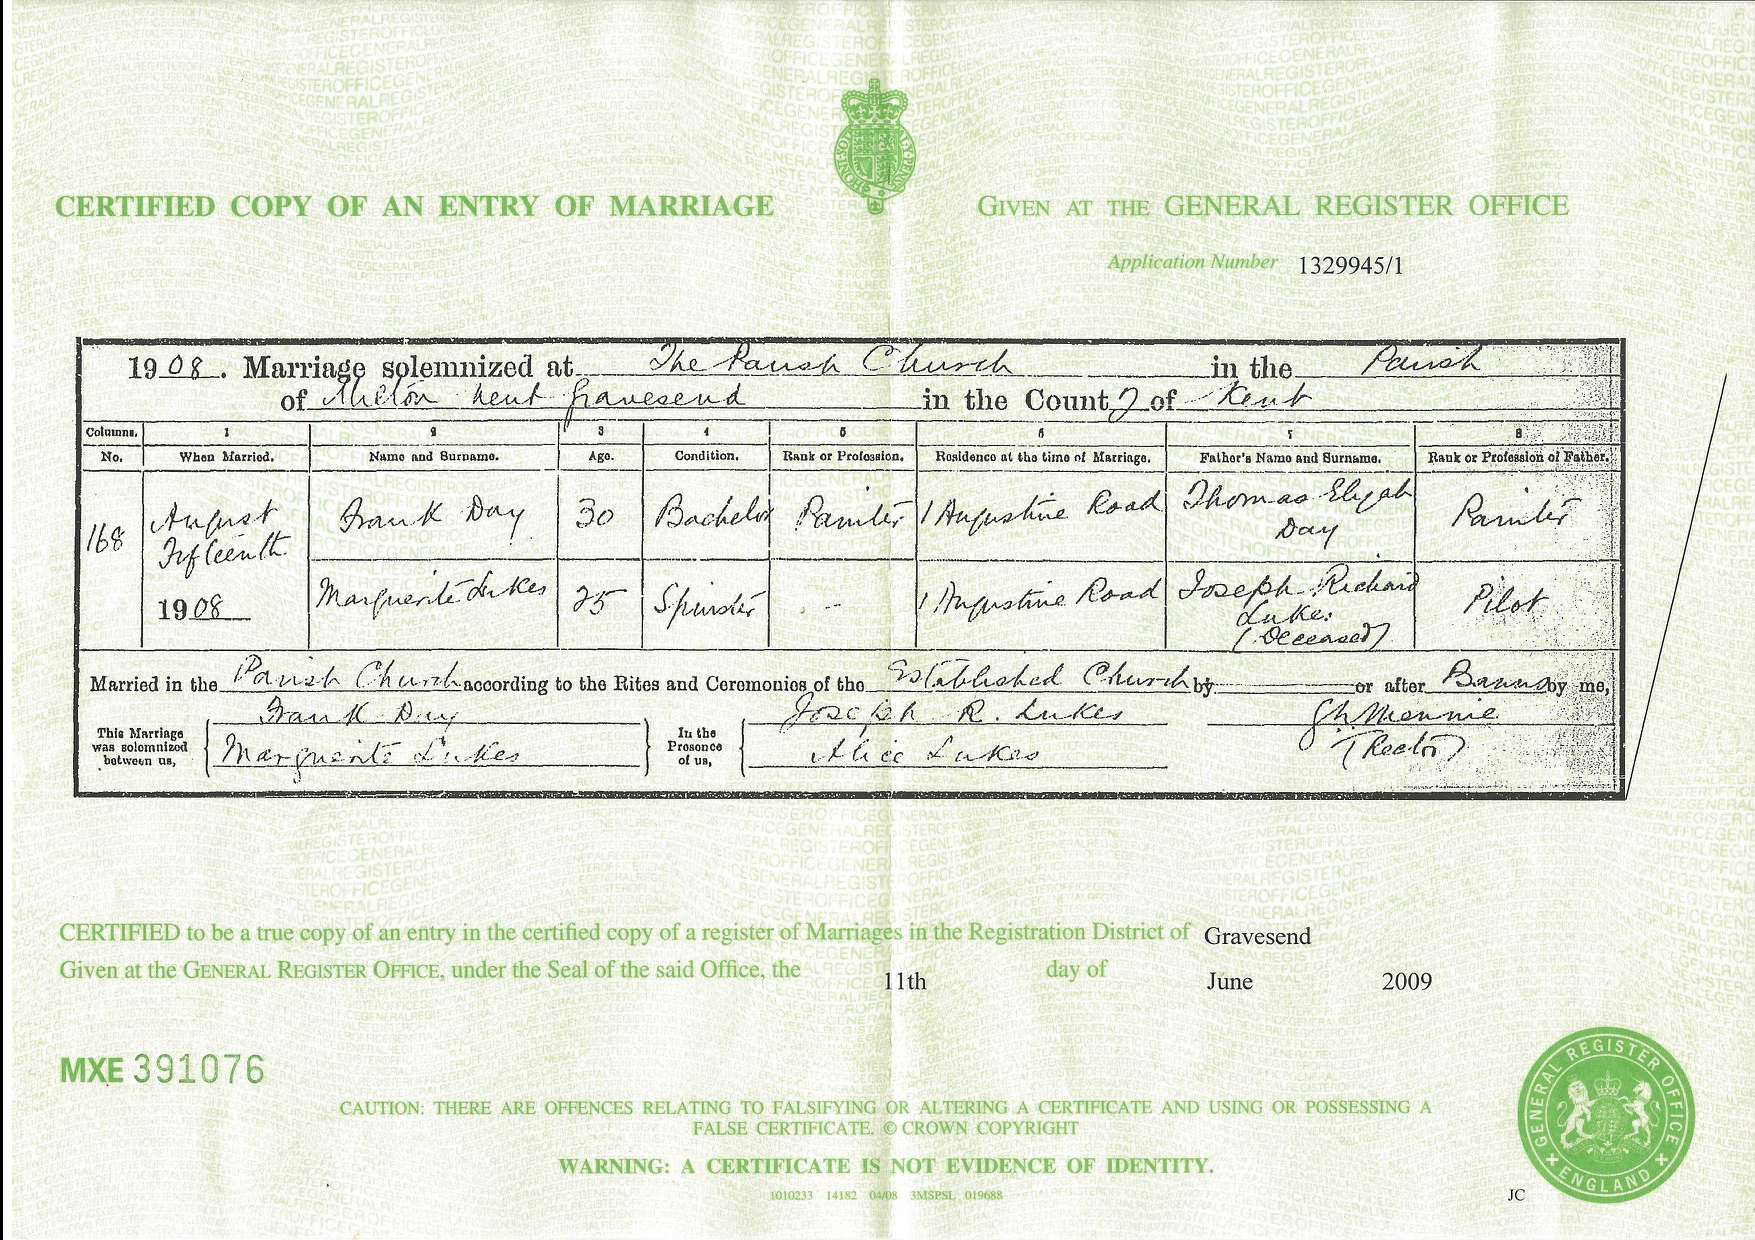 CERTIFIED COPY OF AN ENTRY OF MARRIAGE
GIVEN AT THE GENERAL REGISTER OFFICE
Application Number 1329945/1
1908. Marriage solemnized at The Parish Church in the Parish
of Milton next Gravesend in the County of Kent
Columns. 1 2 3 4 5 6 7 8
No. When Married. Name and Surname. Age. Condition. Rank or Profession. Residence at the time of Marriage. Father's Name and Surname. Rank or Profession of Father.
168 August Fifteenth 1908 Frank Day 30 Bachelor Painter 1 Augustine Road Thomas Elijah Day Painter
Marguerite Lukes 25 Spinster - 1 Augustine Road Joseph Richard Lukes (Deceased) Pilot
Married in the Parish Church according to the Rites and Ceremonies of the Established Church by or after Banns by me,
This Marriage was solemnized between us, Frank Day In the Presence of us, Joseph R. Lukes
Marguerite Lukes Alice Lukes (Rector)
CERTIFIED to be a true copy of an entry in the certified copy of a register of Marriages in the Registration District of Gravesend
Given at the GENERAL REGISTER OFFICE, under the Seal of the said Office, the 11th day of June 2009
MXE 391076
CAUTION: THERE ARE OFFENCES RELATING TO FALSIFYING OR ALTERING A CERTIFICATE AND USING OR POSSESSING A
FALSE CERTIFICATE. © CROWN COPYRIGHT
WARNING: A CERTIFICATE IS NOT EVIDENCE OF IDENTITY.
1010233 14182 04/08 3MSPSL 019688
JC
GENERAL REGISTER OFFICE
ENGLAND